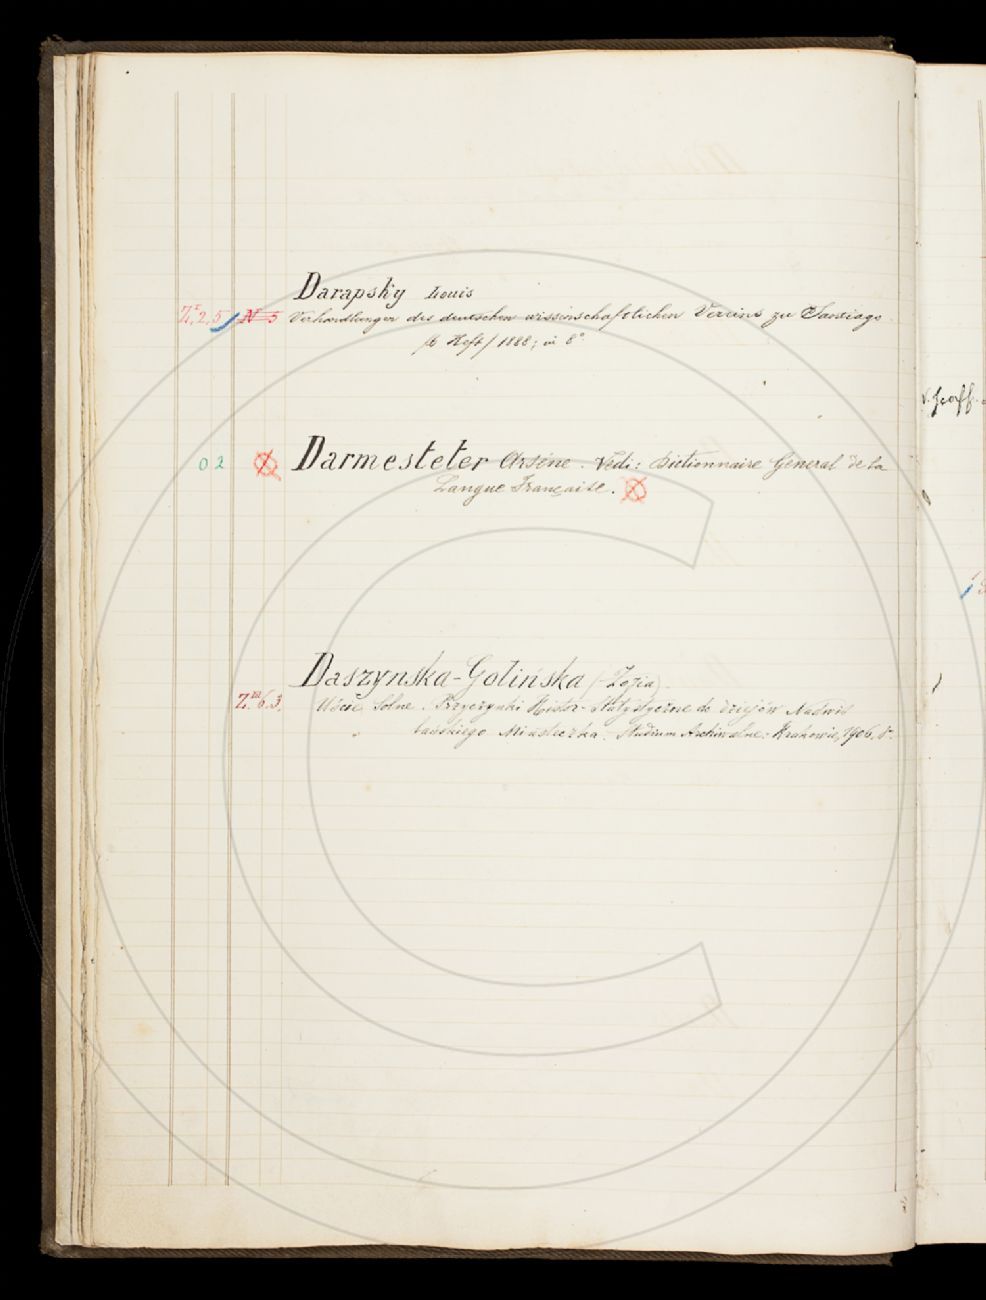 Darapsky Louis
Z,r,2,5 N=5 Verhandlungen des deutschen wissenschaftlichen Vereins zu Santiago.
/6 Heft/ 1888; in 8°
02 Darmesteter Arsène. Vedi: Dictionnaire General de la
Langue Française.
Daszynska-Golińska (Zofia).
Z.m.6.3. Uście Solne. Przyczynki Histor-Statystyczne do dziejów Nadwiś
lańskiego Miasteczka. Studium Archiwalne: Krakowie, 1906, 8°